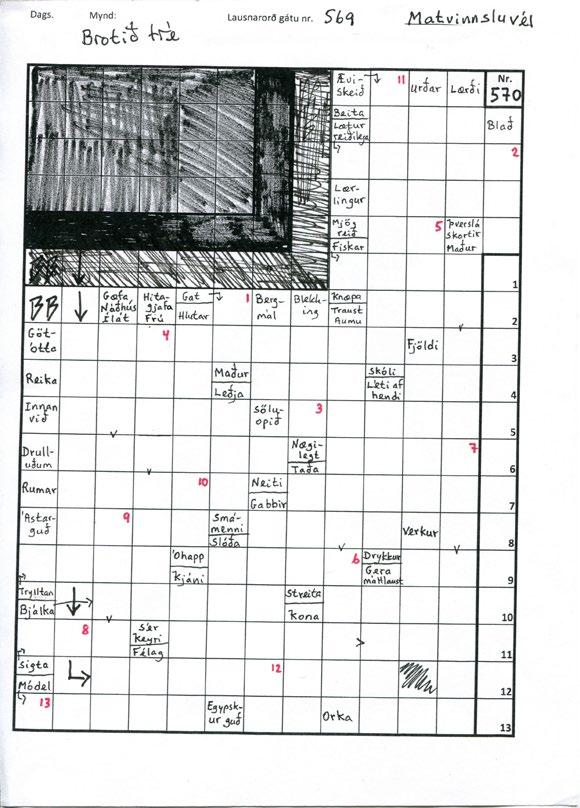 Dags. Mynd: Lausnarorð gátu nr. 569 Matvinnsluvél
Brotið tré
Ævi-
skeið
11
Urðar
Lærði
Nr.
570
Beita
Lætur
reiðilega
Blað
2
Lær-
lingur
Mjög
reið
Fiskar
5
Þverslá
Skortir
Maður
1
BB
Gæfa,
Náðhús
Ílát
Hita-
gjafa
Frú
Gat
Hlutar
1
Berg-
mál
Blekk-
ing
Knæpa
Traust
Aumu
2
Göt-
ótta
4
Fjöldi
3
Reika
Maður
Leðja
Skóli
Léti af
hendi
4
Innan
við
Sölu-
opið
3
5
Drull-
uðum
Nægi-
legt
Taða
7
6
Rumar
10
Neiti
Gabbir
7
Ástar-
guð
9
Smá-
menni
Slóða
Verkur
8
Óhapp
Kjáni
6
Drykkur
Gera
máttlaust
9
Trylltan
Bjálka
Streita
Kona
10
8
Sér
Keyri
Félag
11
Sigta
Módel
12
12
13
Egypsk-
ur guð
Orka
13